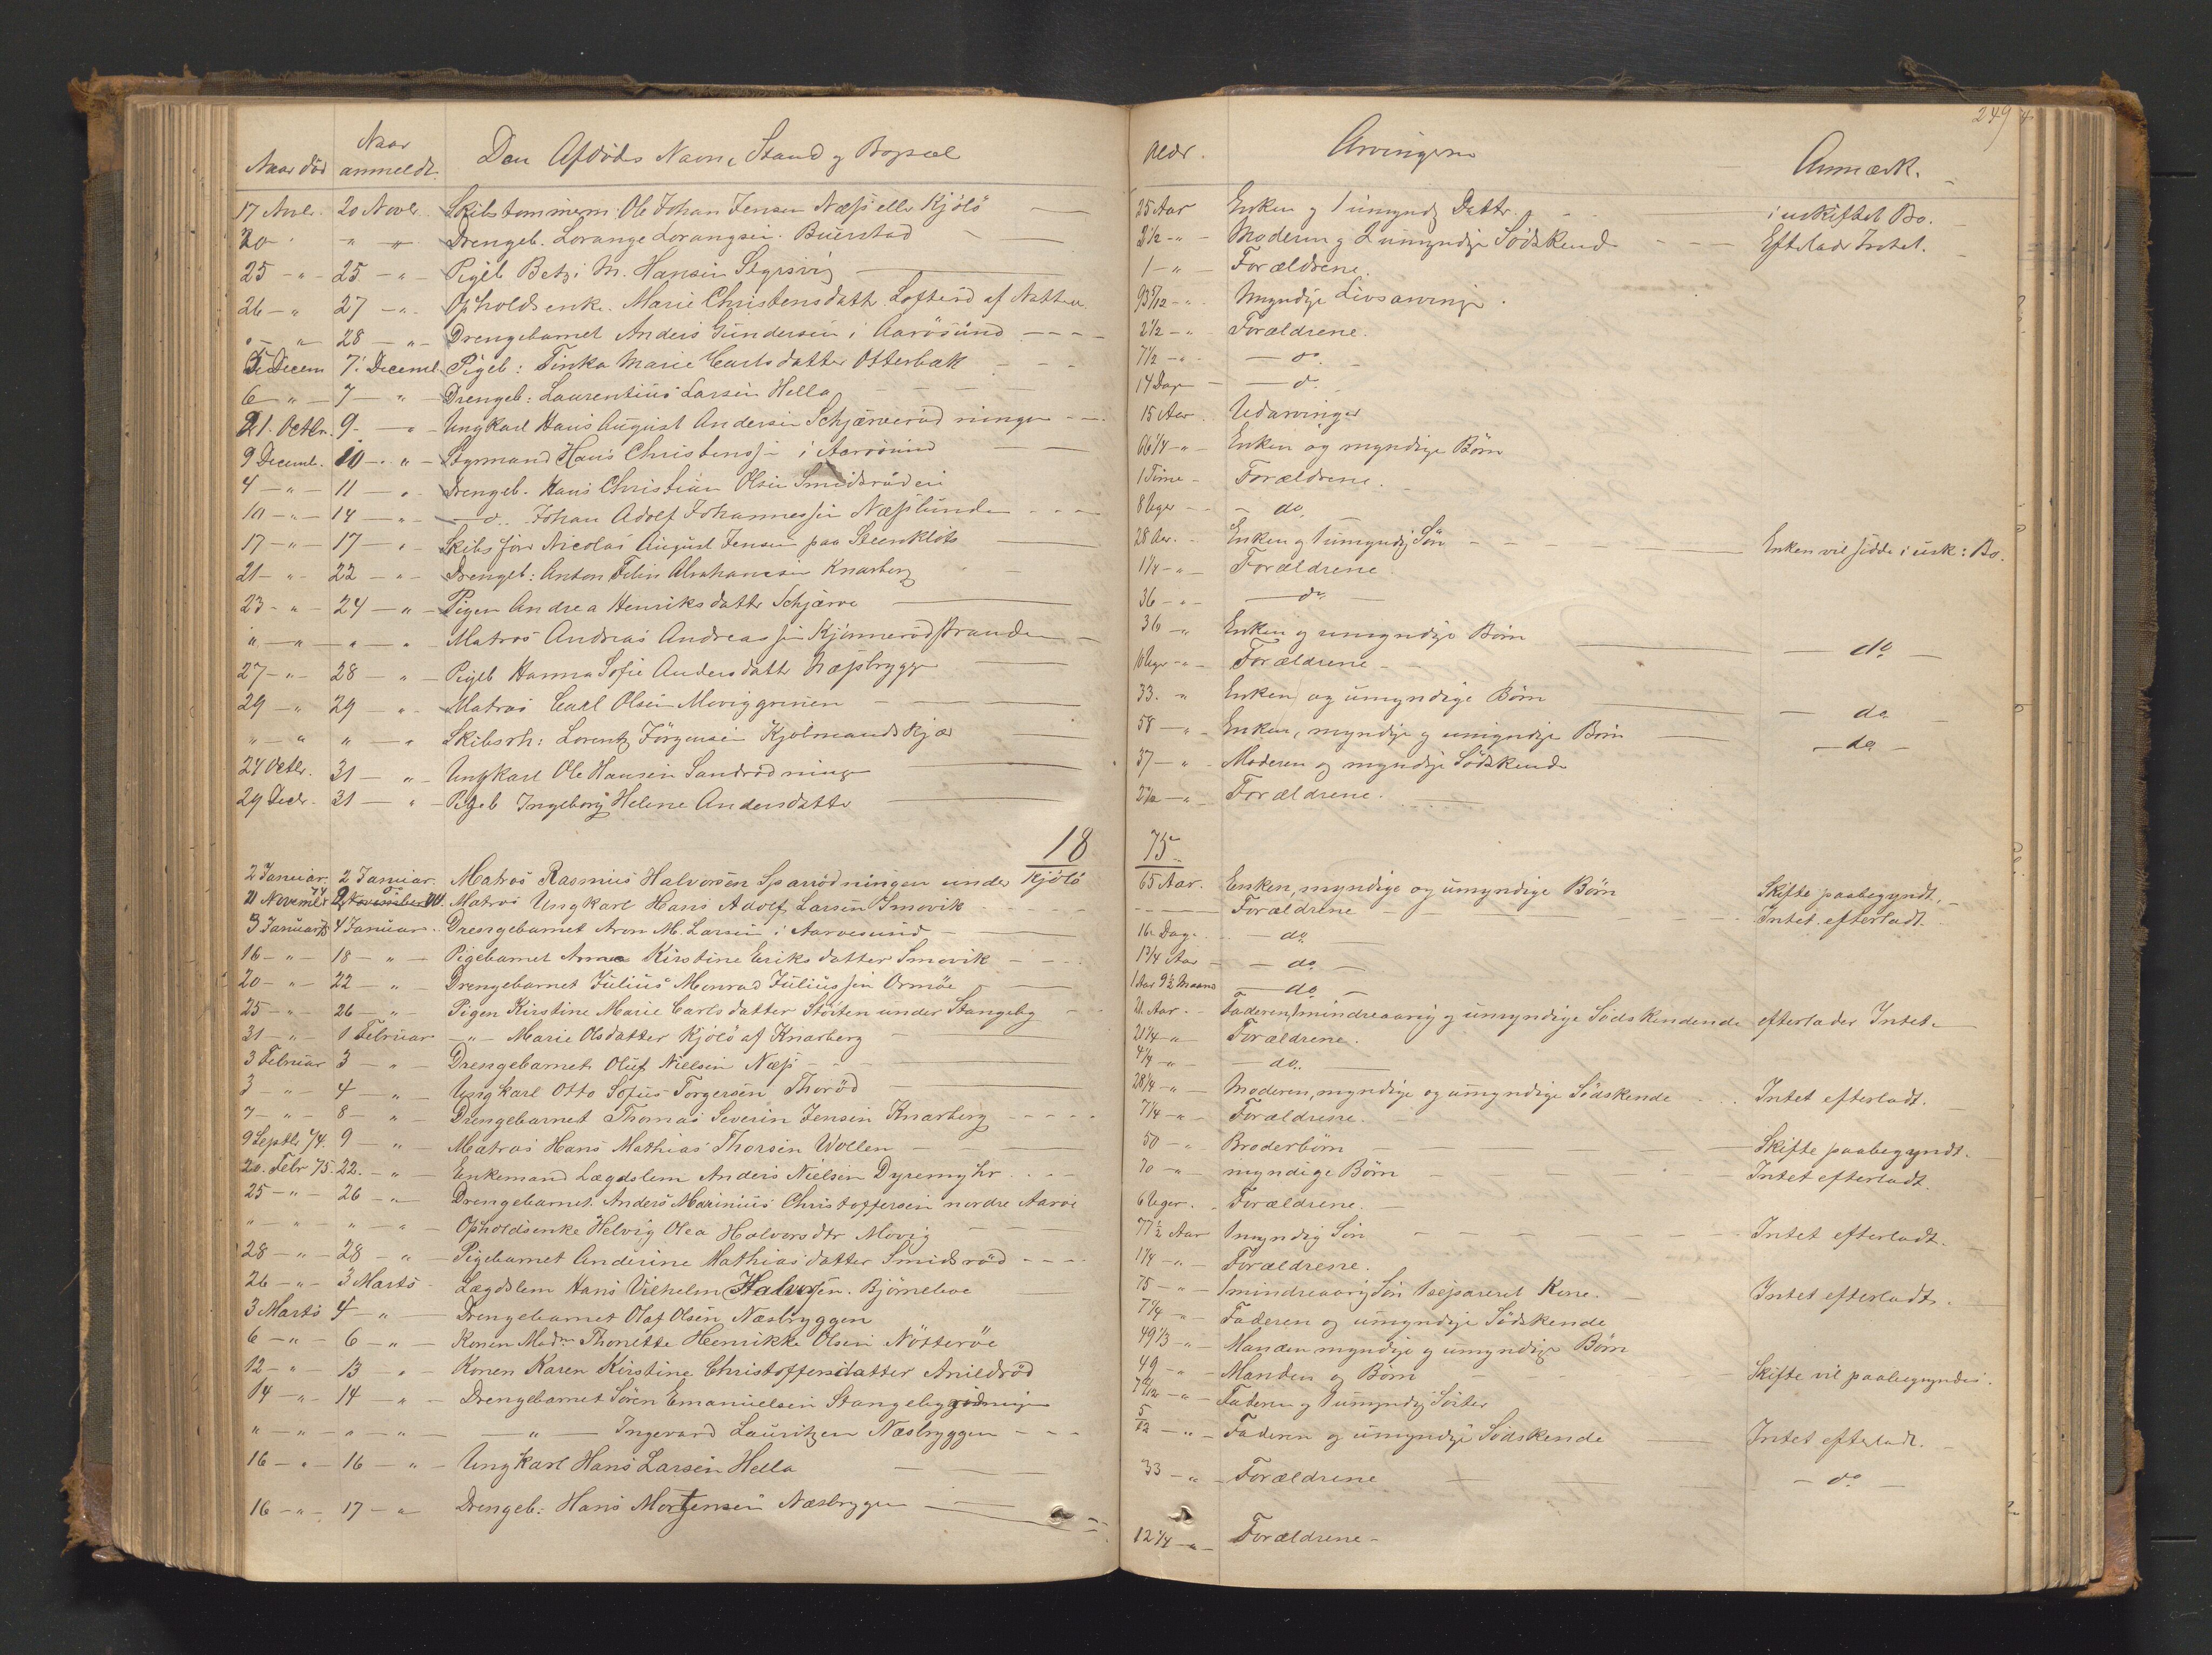 249
Naar død Naar anmeldt. Den Afdødes Navn, Stand og Bopæl Alder. Arvingerne Anmærk.
17 Novbr. 20 Novbr. Skibstømmerm. Ole Johan Jensen Næss eller Kjölö 25 Aar Enken og 1 umyndig Datter i uskiftet Bo.
20 " " " Drengeb. Lorange Lorangsen Buerstad 2 1/2 - " - Moderen og 2 umyndige Södskende Efterlader Intet.
25 - " - 25 - " - Pigeb. Betzi M. Hansen 1 - " - Forældrene.
26 - " 27 - " - Opholdsenke. Marie Christensdatter Lofteröd af 93 - " - Myndige Livsarvinger.
" - " - 28 - " - Drengebarnet Anders Gundersen i Aarösund 2 1/2 - " - Forældrene.
5 Decem 7 Decemb. Pigeb: Tinka Marie Carlsdatter Otterbæk 7 1/2 - " - do
6 - " - 7 - " - Drengeb: Laurentius Larsen Hella 14 Dage - do.
21. Octbr. 9 - " - Ungkarl Hans August Andersen Schjærveröd ningen 15 Aar. Udarvinger
9 Decemb. 10 - " - Styrmand Hans Christenss i Aarösund 66 1/4 - " - Enken og myndige Börn
4 - " - 11 - " - Drengeb. Hans Christian Olsen Smidsröden 1 Time - Forældrene.
10 - " - 14 - " - do. Johan Adolf Johannessen Næsslunden 8 Uger - do.
17 - " - 17 - " - Skibsförer Nicolai August Jensen paa Steenklöts 28 Aar. Enken og 1 umyndig Sön Enken vil sidde i usk: Bo.
21 - " - 22 - " - Drengeb: Anton Abrahamsen Knarberg 1 1/4 - " - Forældrene.
23 - " - 24 - " - Pigen Andrea Henriksdatter Schjærve 36 - " - do
" - " - " - " - Matros Andreas Andreassen Kjönnerödstranden 36 - " Enken og umyndige Börn do
27 - " - 28 - " - Pigeb Hanna Sofie Andersdatter Næssbryggen 10 Uger - " - Forældrene -
29 - " 29 - " - Matros Carl Olsen Moviggrinen 33 - " Enken og umyndige Börn do.
" - " " - " Skibsrh: Lorentz Jörgensen Kjolmandskjær 58 - " - Enken, myndige og umyndige Börn do
24 Octbr. 31 - " - Ungkarl Ole Hansen Sandrödningen 37 - " - Moderen og myndige Södskende
29 Decbr. 31 - " - Pigeb Ingeborg Helene Andersdatter - " - Forældrene.
18 75
2 Januar. 2 Januar. Matros Rasmus Halvorsen Sparrödningen under Kjölö 65 Aar. Enken, myndige og umyndige Börn Skifte paabegyndt.
21 Novembr 74 Matros Ungkarl Hans Adolf Larsen Smovik Forældrene Intet efterladt.
3 Januar 75 4 Januar. Drengebarnet Aron M. Larsen i Aarvesund 16 Dage. do
16 - " - 18 - " - Pigebarnet Anna Kirstine Eriksdatter Smovik 1 3/4 Aar do
20 - " - 22 - " - Drengebarnet Julius Monrad Juliussen Ormöe 1 Aar 9 1/2 Maaned do
25 - " - 26 - " - Pigen Kirstine Marie Carlsdatter Stöiten under Stangeby 21 Aar. Faderen, 1 mindreaarig og umyndige Södskendende efterlader Intet.
31 - " - 1 Februar - " - Marie Olsdatter Kjölö af Knarberg 21 1/4 - " Forældrene.
3 Februar 3 - " - Drengebarnet Oluf Nielsen Næss 4 1/4 - " - do.
3 - " - 4 - " - Ungkarl Otto Sofus Torgersen Thoröd 28 1/4 - " - Moderen, myndige og umyndige Södskende Intet efterladt.
7 - " - 8 - " - Drengebarnet Thomas Severin Jensen Knarberg 7 1/4 - " - Forældrene.
9 Septbr 74. 9 - " - Matros Hans Mathias Thorsen Wollen 50 - " Broderbörn Skifte paabegyndt.
20. Febr 75. 22. - " - Enkemand Lægdslem Anders Nielsen Dyremyhr 70 - " myndige Börn Intet efterladt.
25 - " - 26 - " - Drengebarnet Anders Marinius Christoffersen nordre Aarve 6 Uger. Forældrene.
" - " - " - " - Opholdsenke Helvig Olea Halvorsdtr Movig 77 1/2 Aar 1 myndig Sön Intet efterladt.
28 - " - 28 - " - Pigebarnet Anderine Mathiasdatter Smidsröd 1 1/4 - " - Forældrene.
26 - " - 3 Marts Lægdslem Hans Vilhelm Halvorsen. Björneboe 75 - " - 1 mindreaarig Sön 1 separeret Kone. Intet efterladt.
3 Marts 4 - " - Drengebarnet Olaf Olsen Næsbryggen 7 1/4 - " - Faderen og umyndige Södskende
6 - " - 6 - " - Konen Madm Thonette Henrikke Olsen Nötteröe 49 1/3 - " - Manden myndige og umyndige Börn
12 - " - 13 - " - Konen Karen Kirstine Christoffersdatter Arnildröd 49 - " - Manden og Börn Skifte vil paabegyndes.
14 - " - 14 - " - Drengebarnet Sören Emanuelsen Stangebyrödningen - " - Faderen og 1 umyndig Söster
" - " - " - " - - " - Ingevard Lauritzen Næsbryggen 5/12 - " - Faderen og umyndige Södskende Intet efterladt.
16 - " - 16 - " - Ungkarl Hans Larsen Hella 33 - " - Forældrene - do -
16 - " - 17 - " - Drengeb: Hans Mortensen Næsbryggen 12 1/4 - " - Forældrene -